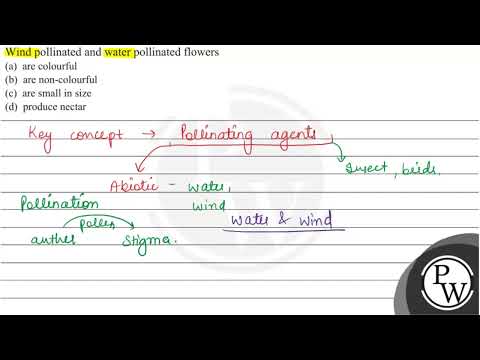 Wind pollinated and water pollinated flowers
(a) are colourful
(b) are non-colourful
(c) are small in size
(d) produce nectar
Key concept → Pollinating agents
Insect, birds.
Abiotic - water,
wind
Pollination
Pollen
anther Stigma.
water & wind
PW